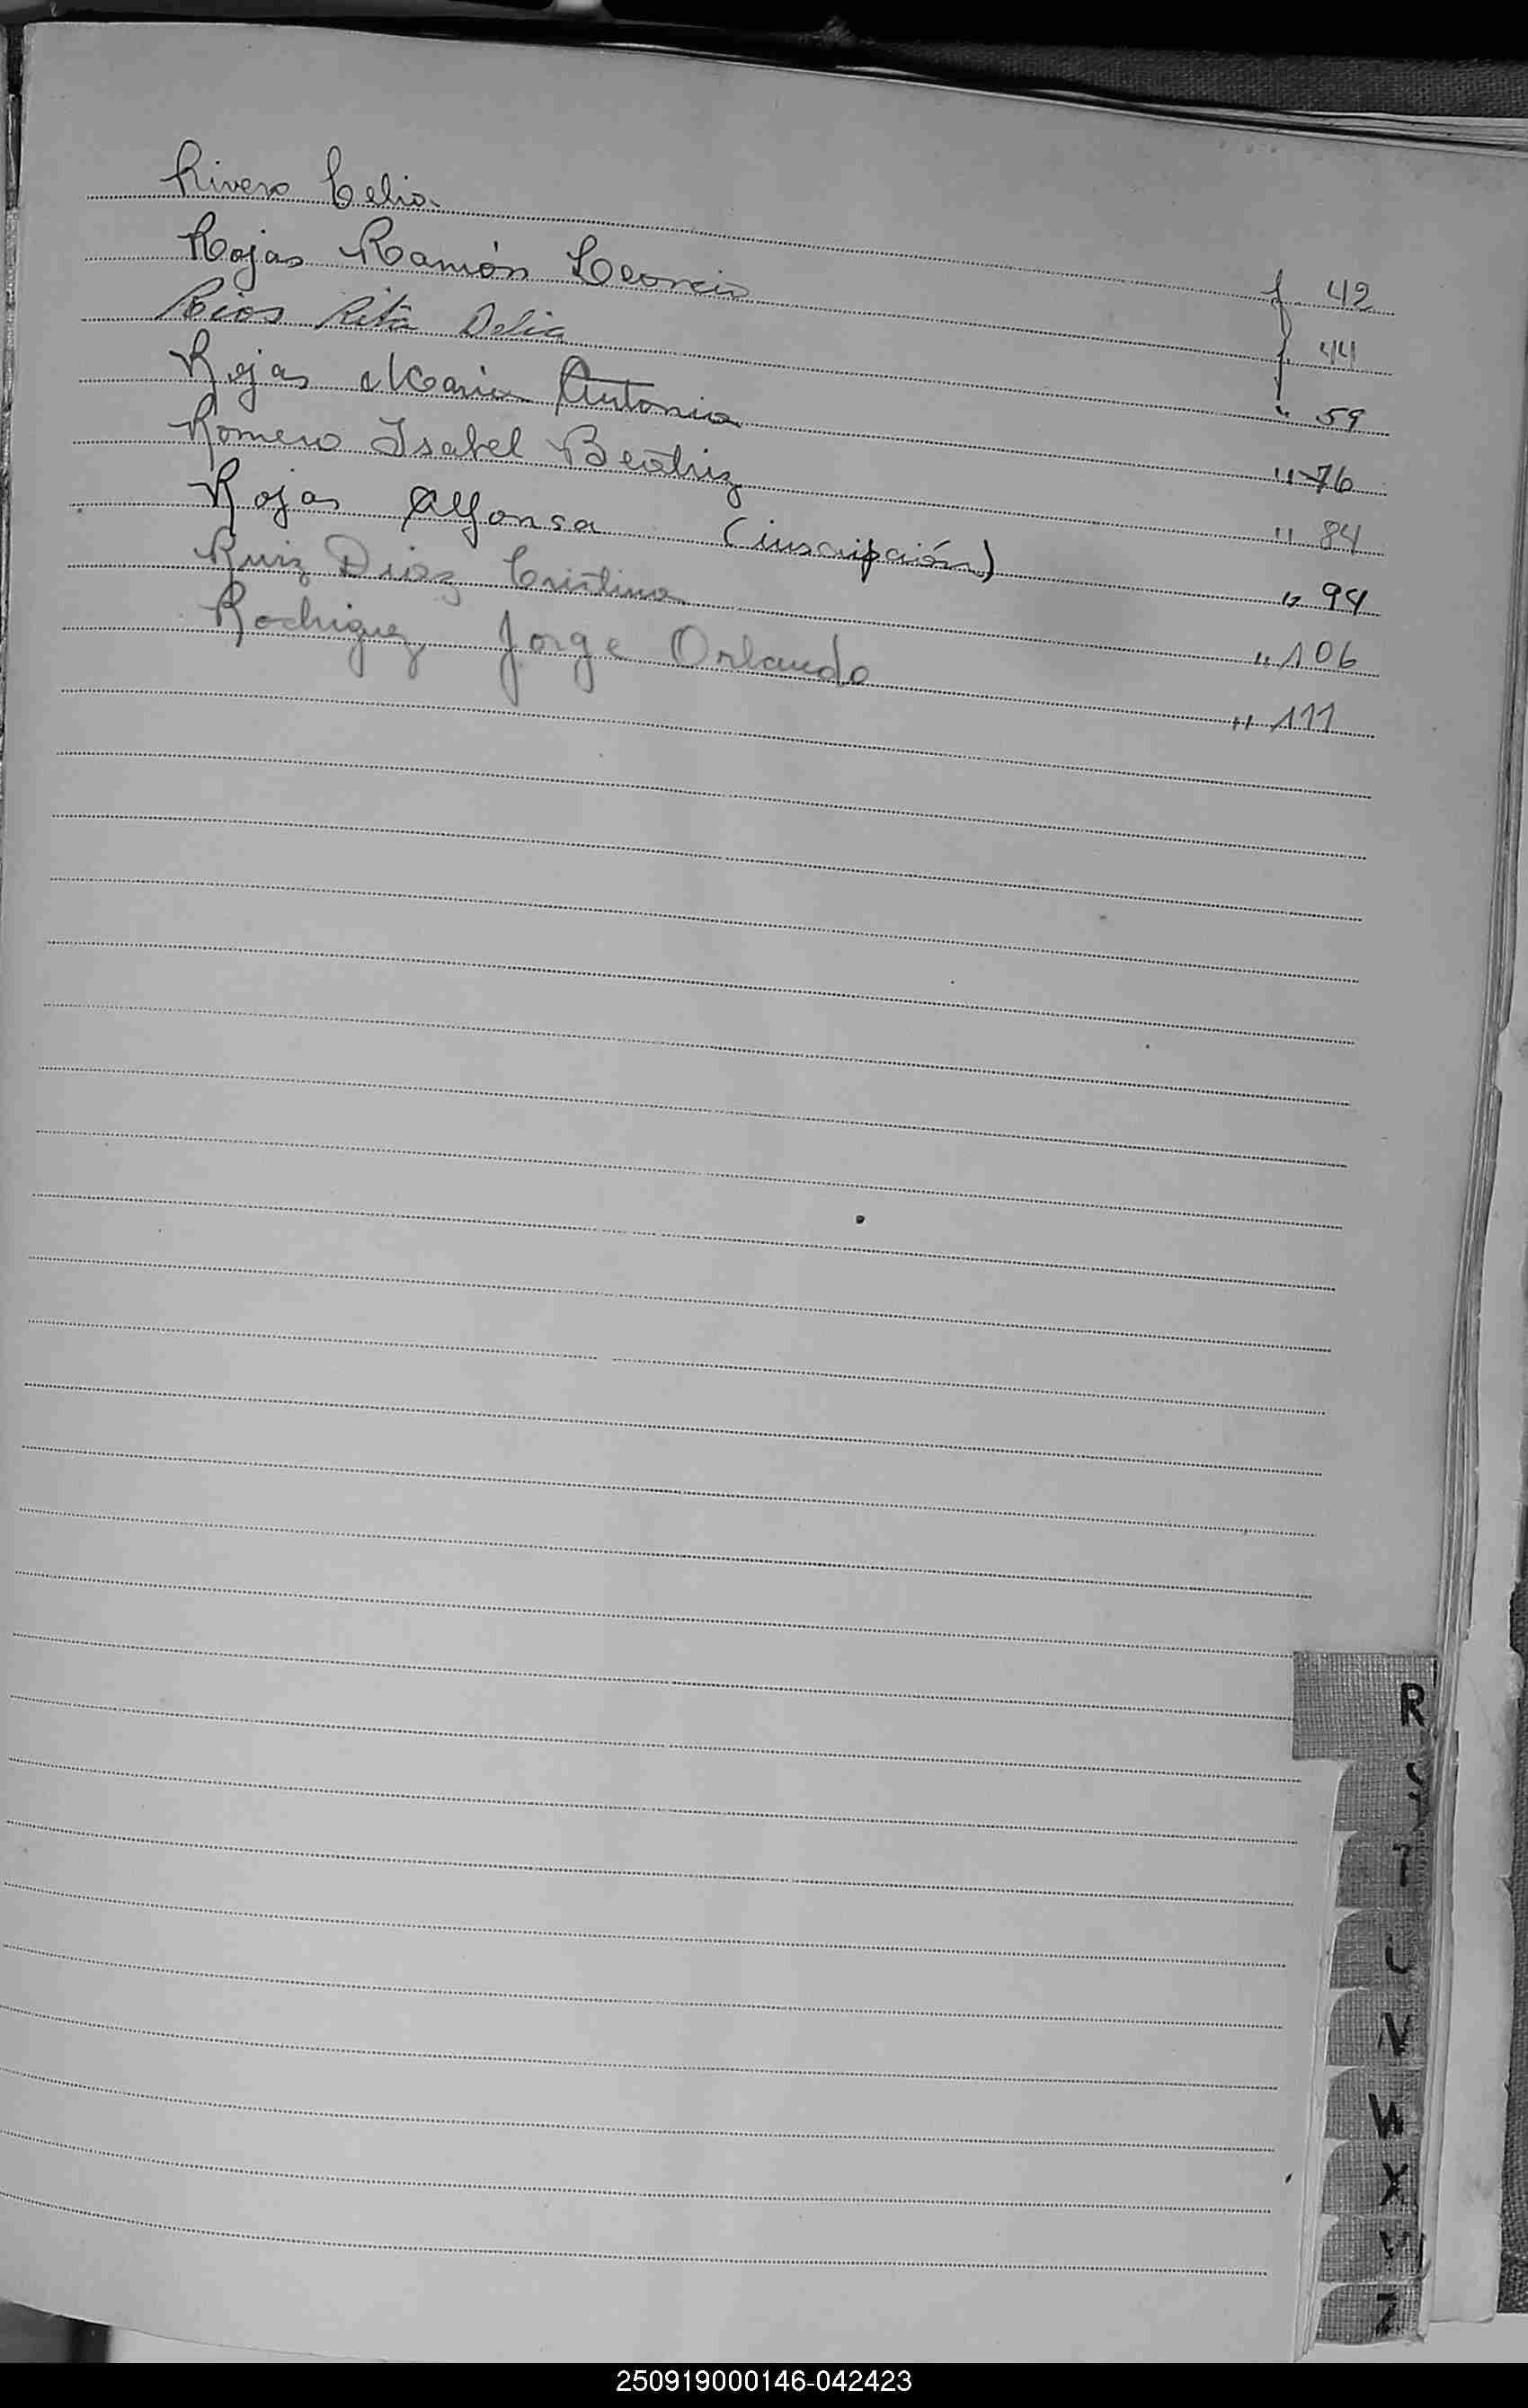 Rivero Celia f 42
Rojas Ramón Leoncio f 44
Rios Rita Delia " 59
Rojas Maria Antonia " 76
Romero Isabel Beatriz " 84
Rojas Alfonsa (inscripción) " 94
Ruiz Diaz Cristina " 106
Rodriguez Jorge Orlando " 111
R
S
T
U
V
W
X
Y
Z
250919000146-042423